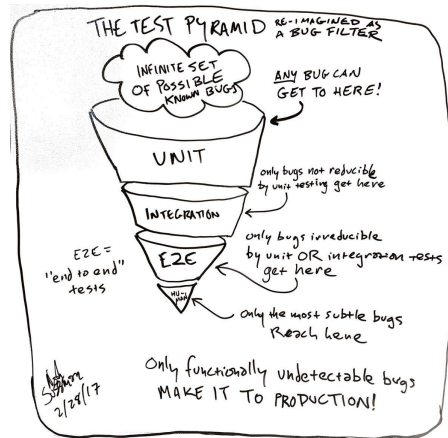 THE TEST PYRAMID RE-IMAGINED AS
A BUG FILTER
INFINITE SET
OF POSSIBLE
KNOWN BUGS
ANY BUG CAN
GET TO HERE!
UNIT
only bugs not reducible
by unit testing get here
INTEGRATION
only bugs irreducible
by unit OR integration tests
get here
E2E
E2E =
"end to end"
tests
HU-
MAN
only the most subtle bugs
Reach here
Only functionally undetectable bugs
MAKE IT TO PRODUCTION!
2/28/17